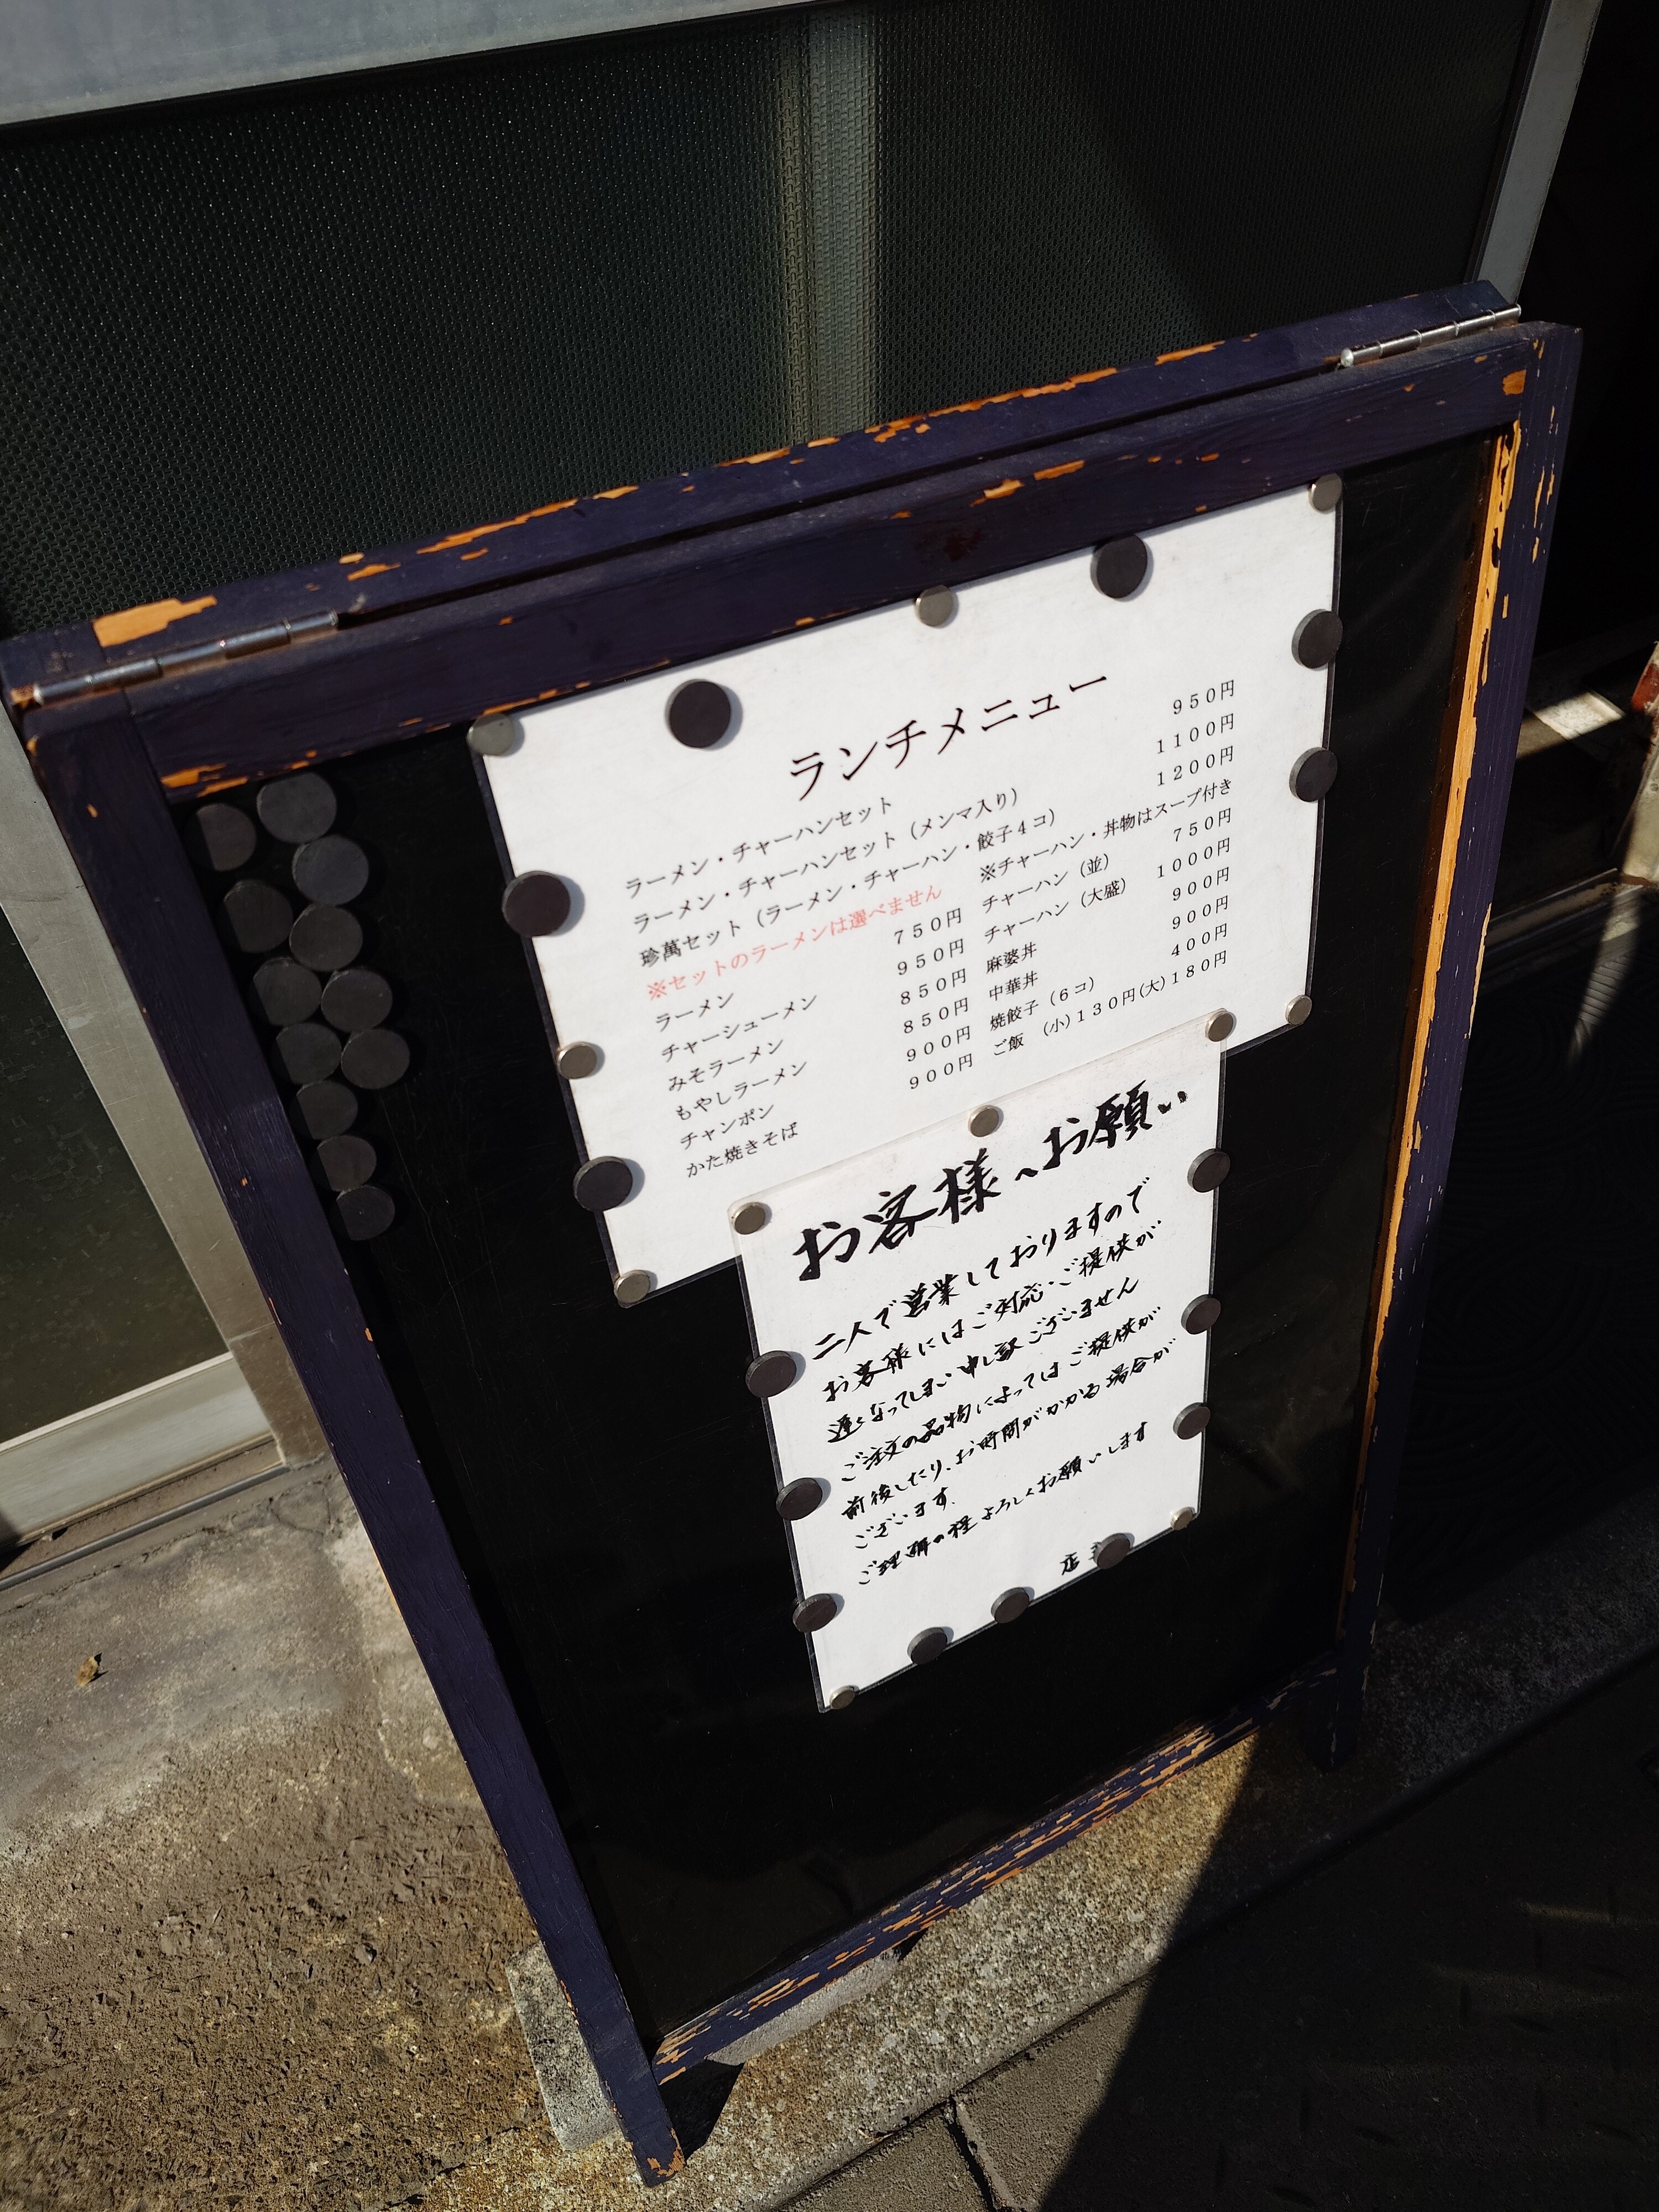 ランチメニュー
ラーメン・チャーハンセット 950円
ラーメン・チャーハンセット（メンマ入り） 1100円
珍萬セット（ラーメン・チャーハン・餃子4コ） 1200円
※セットのラーメンは選べません
※チャーハン・丼物はスープ付き
ラーメン 750円
チャーシューメン 950円
みそラーメン 850円
もやしラーメン 850円
チャンポン 900円
かた焼きそば 900円
チャーハン（並） 750円
チャーハン（大盛） 1000円
麻婆丼 900円
中華丼 900円
焼餃子（6コ） 400円
ご飯 (小)130円(大)180円
お客様へお願い
二人で営業しておりますので
お客様にはご対応・ご提供が
遅くなってしまい申し訳ございません
ご注文の品物によってはご提供が
前後したり、お時間がかかる場合が
ございます。
ご理解の程よろしくお願いします
店